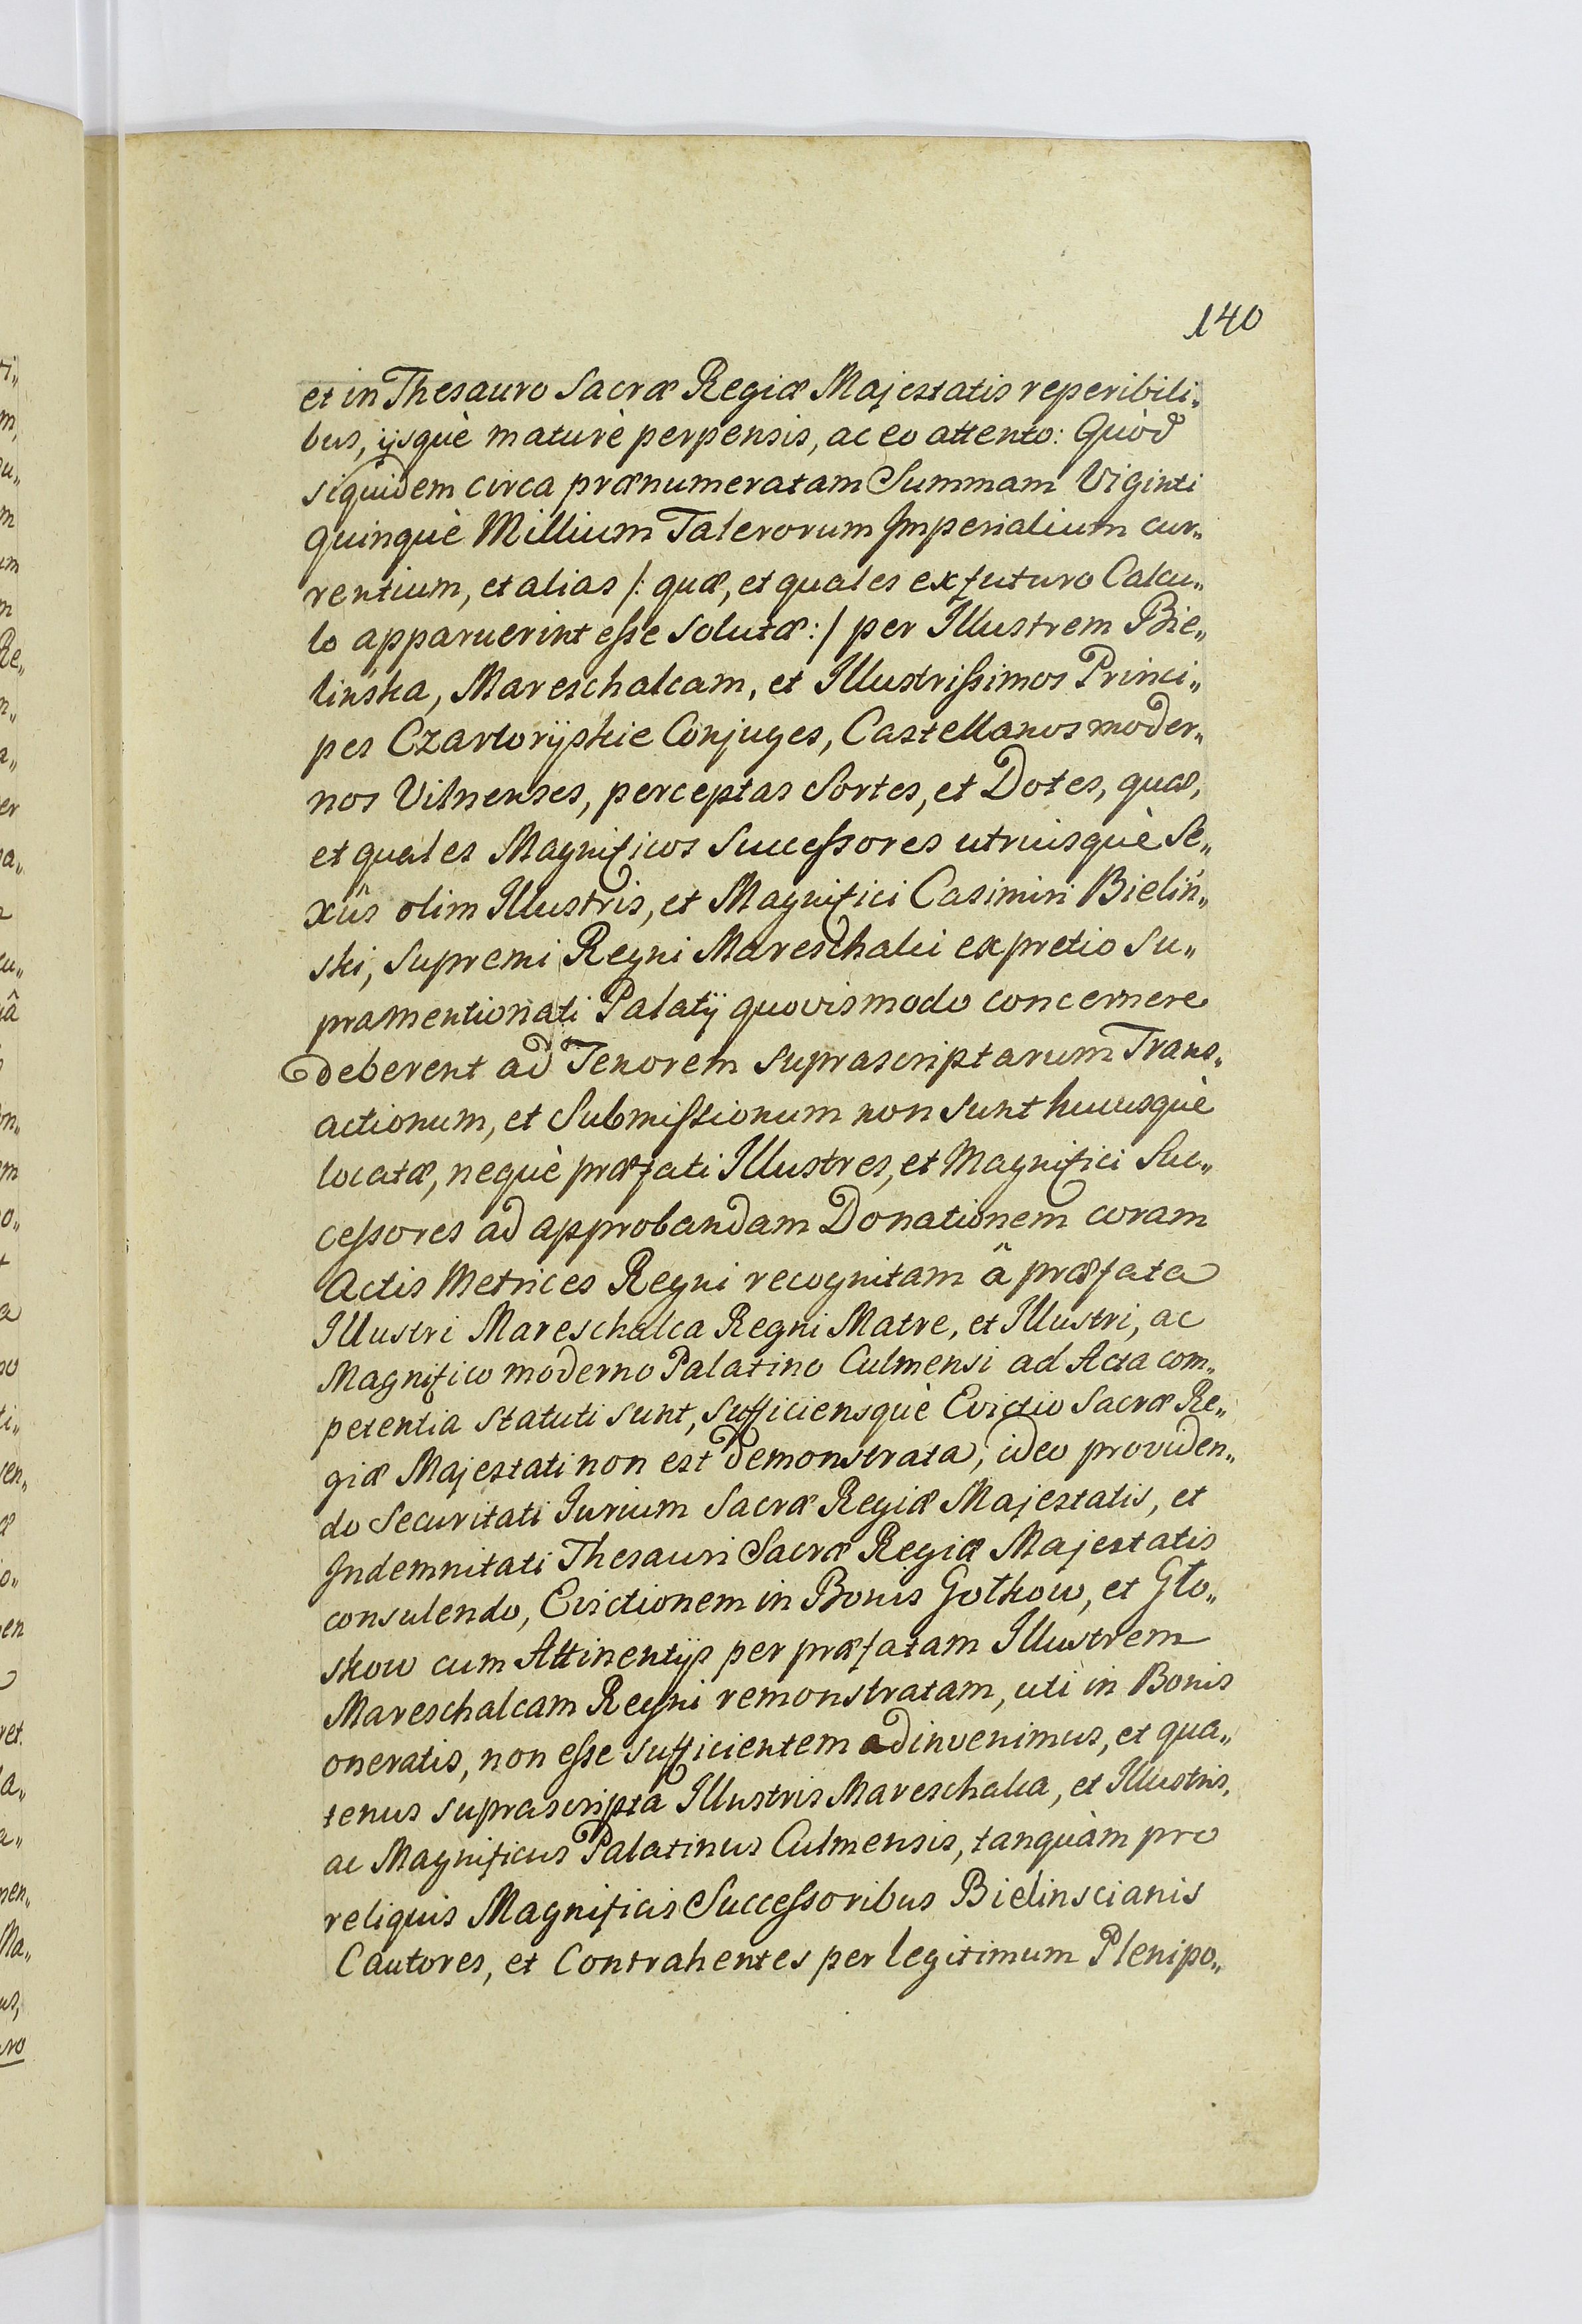 140
et in Thesauro Sacræ Regiæ Majestatis reperibili„
bus, ijsquè maturè perpensis, ac eo attento: Quòd
siquidem circa prænumeratam Summam Viginti
quinquè Millium Talerorum Imperialium cur„
rentium, et alias /: quæ, et quales ex futuro Calcu„
lo apparuerint eſse solutæ :/ per Illustrem Bie„
lińska, Mareschalcam, et Illustriſsimos Princi„
pes Czartoryskie Conjuges, Castellanos moder„
nos Vilnenses, perceptas Sortes, et Dotes, quæ,
et quales Magnificos Succeſsores utriusquè Se„
xûs olim Illustris, et Magnifici Casimiri Bieliń„
ski, Supremi Regni Mareschalci ex pretio su„
pramentionati Palatij quovismodo concernere
deberent ad Tenorem suprascriptarum Trans„
actionum, et Submiſsionum non sunt hucusquè
locatæ, nequè præfati Illustres, et Magnifici Suc„
ceſsores ad approbandam Donationem coram
Actis Metrices Regni recognitam â præfata
Illustri Mareschalca Regni Matre, et Illustri, ac
Magnifico moderno Palatino Culmensi ad Acta com„
petentia statuti sunt, sufficiensquè Evictio Sacræ Re„
giæ Majestati non est demonstrata, ideo providen„
do Securitati Iurium Sacræ Regiæ Majestatis, et
Indemnitati Thesauri Sacræ Regiæ Majestatis
consulendo, Evictionem in Bonis Gotkow, et Gło„
skow cum Attinentijs per præfatam Illustrem
Mareschalcam Regni remonstratam, uti in Bonis
oneratis, non eſse sufficientem adinvenimus, et qua„
tenus suprascripta Illustris Mareschalca, et Illustris,
ac Magnificus Palatinus Culmensis, tanquàm pro
reliquis Magnificis Succeſsoribus Bielinscianis
Cautores, et Contrahentes per legitimum Plenipo„